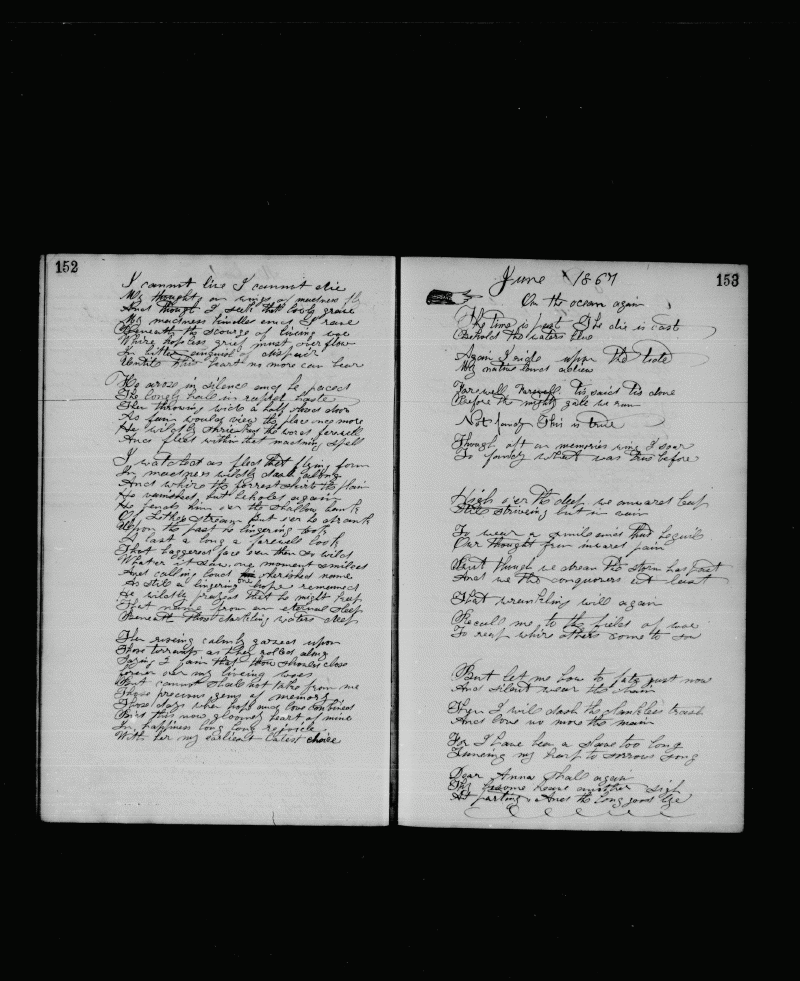 152
I cannot live I cannot die
My thoughts on wings of madness fly
And though I seek that lovely grave
My madness kindles and I rave
Beneath the scourge of living woe
Where hopeless grief must overflow
In bitter anguish of despair
Until this heart no more can bear
He arose in silence and he paced
The lonely hall in rapid haste
Then throwing wide a half closed door
As fain would view the place once more
He wildly the word farewell
And fled within that maddning spell
I watched as fled that flying form
In madness wildly dash along
And where the forrest skirts the plain
He vanished, but beholed again
He finds him over the shallow bank
Of Lithe Stream But ere he drank
Upon the past a lingering look
A last a long a farewell look
That haggered face even then so wild
Whatever it saw, one moment smiled
And calling loud cherished name
As still a lingering hope remained
He wildly prayed that he might keep
That name from an eternal sleep
Beneath those darkling waters deep
Then riseing calmly gazed upon
Those torrents as they rolled along
Saying I fain that thou should close
forever over my liveing woes
But cannot shall not take from me
Those precious gems of memory
Those days when hope and love combined
Bid this now gloomy heart of mine
In happiness long long rejoice
With her my earliest latest choice
153
June 1867
On the ocean again
The time is past The die is cast
Behold the waters blue
Again I ride upon the tide
My native land adieu
Farewell Farewell tis said tis done
Before the mighty gale we run
Not fancy This is true
Though oft on memories wing I soar
To fancy what was true before
High oer the deep we onward leap
Still striveing but in vain
To wear a smile amid that beguile
Our thought from inward pain
And though we dream the storm has past
And we the conquerors at least
That wrankling will again
Recall me to the fields of woe
To reap where others come to sow
But let me bow to fate just now
And silent wear the chain
Then I will dash the thankless trash
And love no more the main
For I have been a Slave too long
Tuneing my harp to sorrows song
Dear Anna Shall again
Thy bosome heave another sigh
At parting, And the long good bye